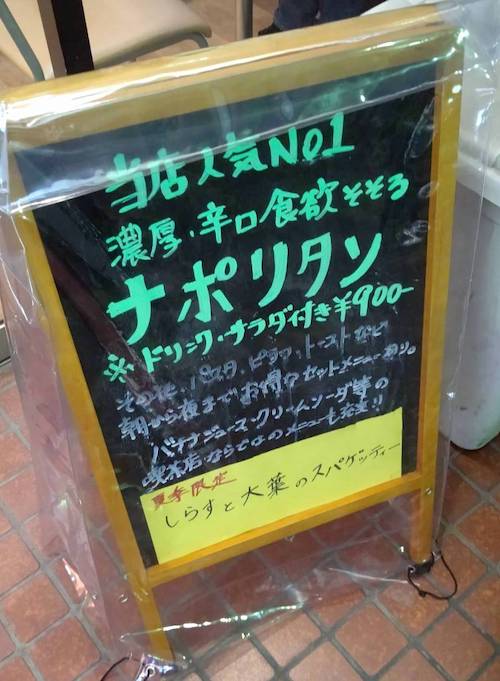 当店人気No1
濃厚、辛口食欲そそる
ナポリタン
※ドリンク・サラダ付き¥900-
その他、パスタ、ピラフ、トーストなど
朝から夜までお得なセットメニューあり。
バナナジュース・クリームソーダ等の
喫茶店ならではのメニューも充実!!
夏季限定
しらすと大葉のスパゲッティー